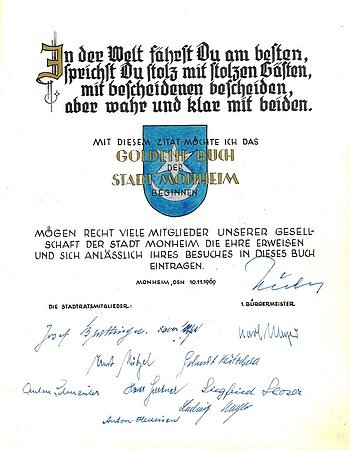 In der Welt fährst Du am besten,
sprichst Du stolz mit stolzen Gästen,
mit bescheidenen bescheiden,
aber wahr und klar mit beiden.
MIT DIESEM ZITAT MÖCHTE ICH DAS
GOLDENE BUCH
DER
STADT MONHEIM
BEGINNEN
MÖGEN RECHT VIELE MITGLIEDER UNSERER GESELL-
SCHAFT DER STADT MONHEIM DIE EHRE ERWEISEN
UND SICH ANLÄSSLICH IHRES BESUCHES IN DIESES BUCH
EINTRAGEN.
MONHEIM, DEN 10.11.1969
DIE STADTRATSMITGLIEDER:
1. BÜRGERMEISTER:
Josef
Karl Mayr
Siegfried
Ludwig
Anton